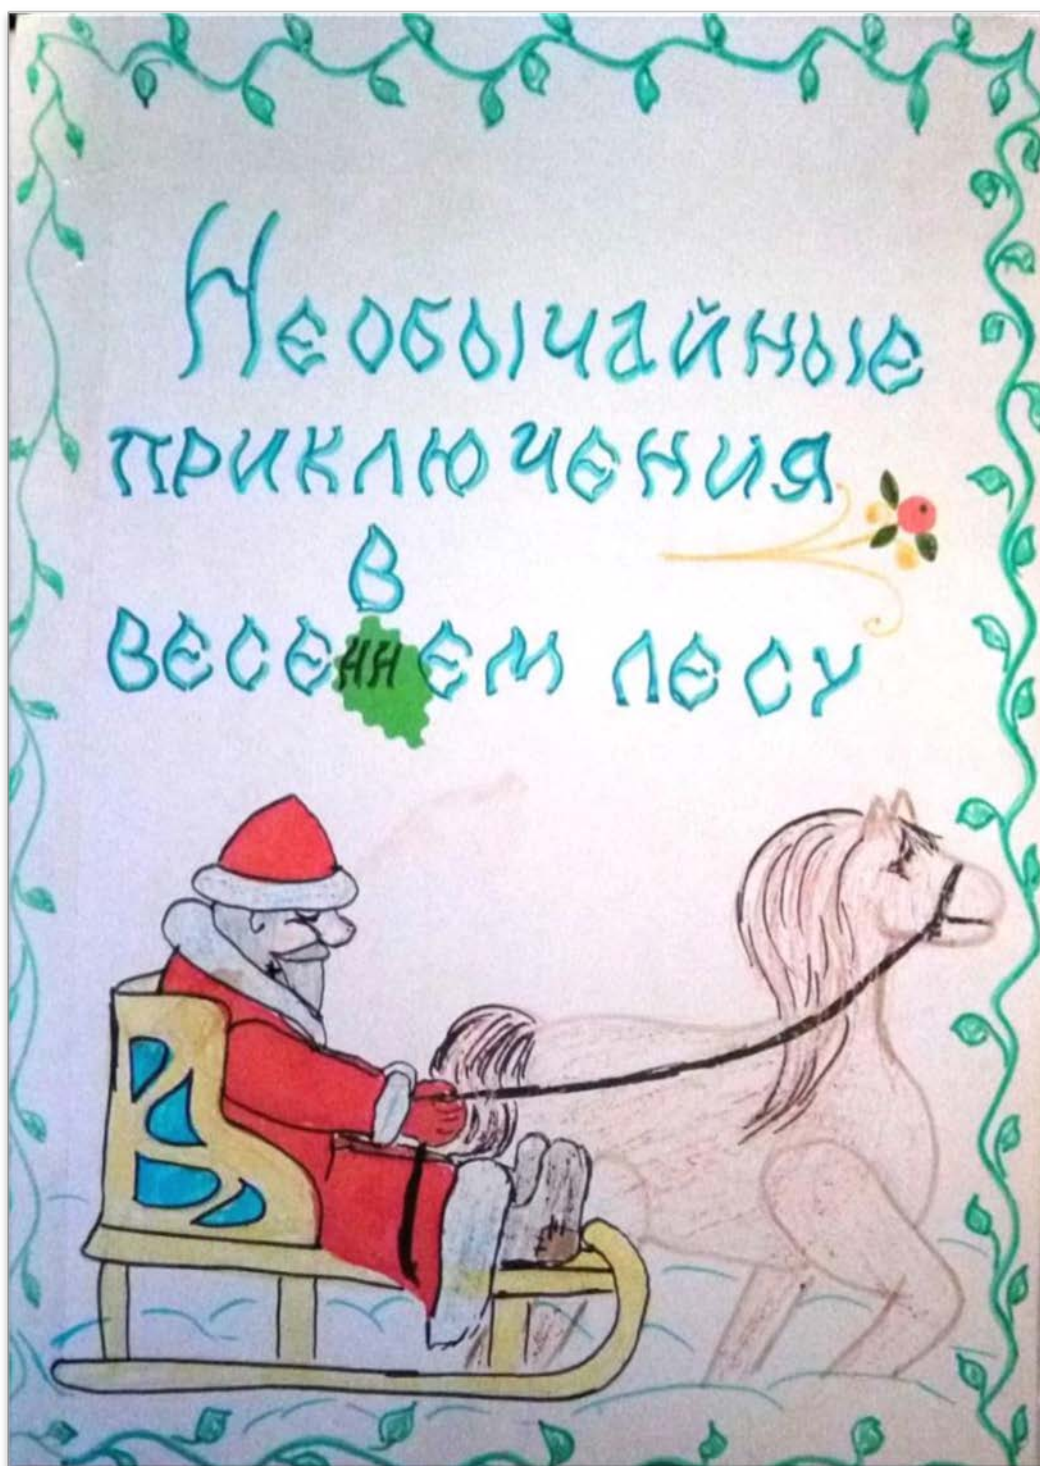 Необычайные
приключения
в
весеннем лесу